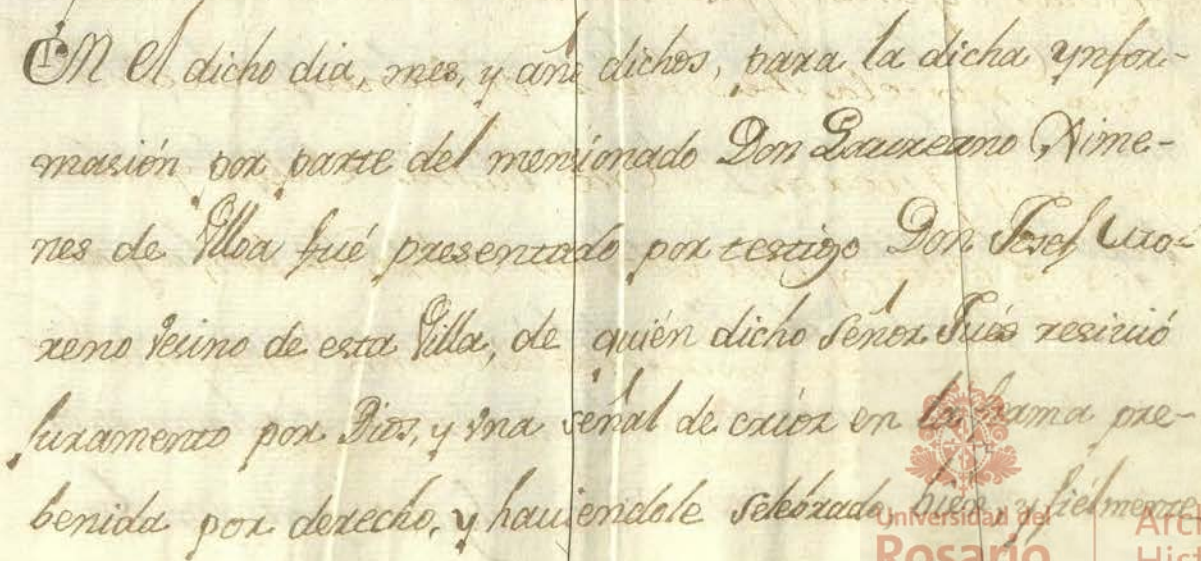 En el dicho dia, mes, y año dichos, para la dicha ynfor-
masión por parte del mensionado Don Laureano Xime-
nes de Ulloa fué presentado por testigo Don Josef Mo-
reno vesino de esta Villa, de quién dicho señor Jués resivió
juramento por Dios, y una señal de crúz en la forma pre-
benida por derecho, y haviendole selebrado bien, y fiélmente
Universidad del
Rosario
Arc
Hist